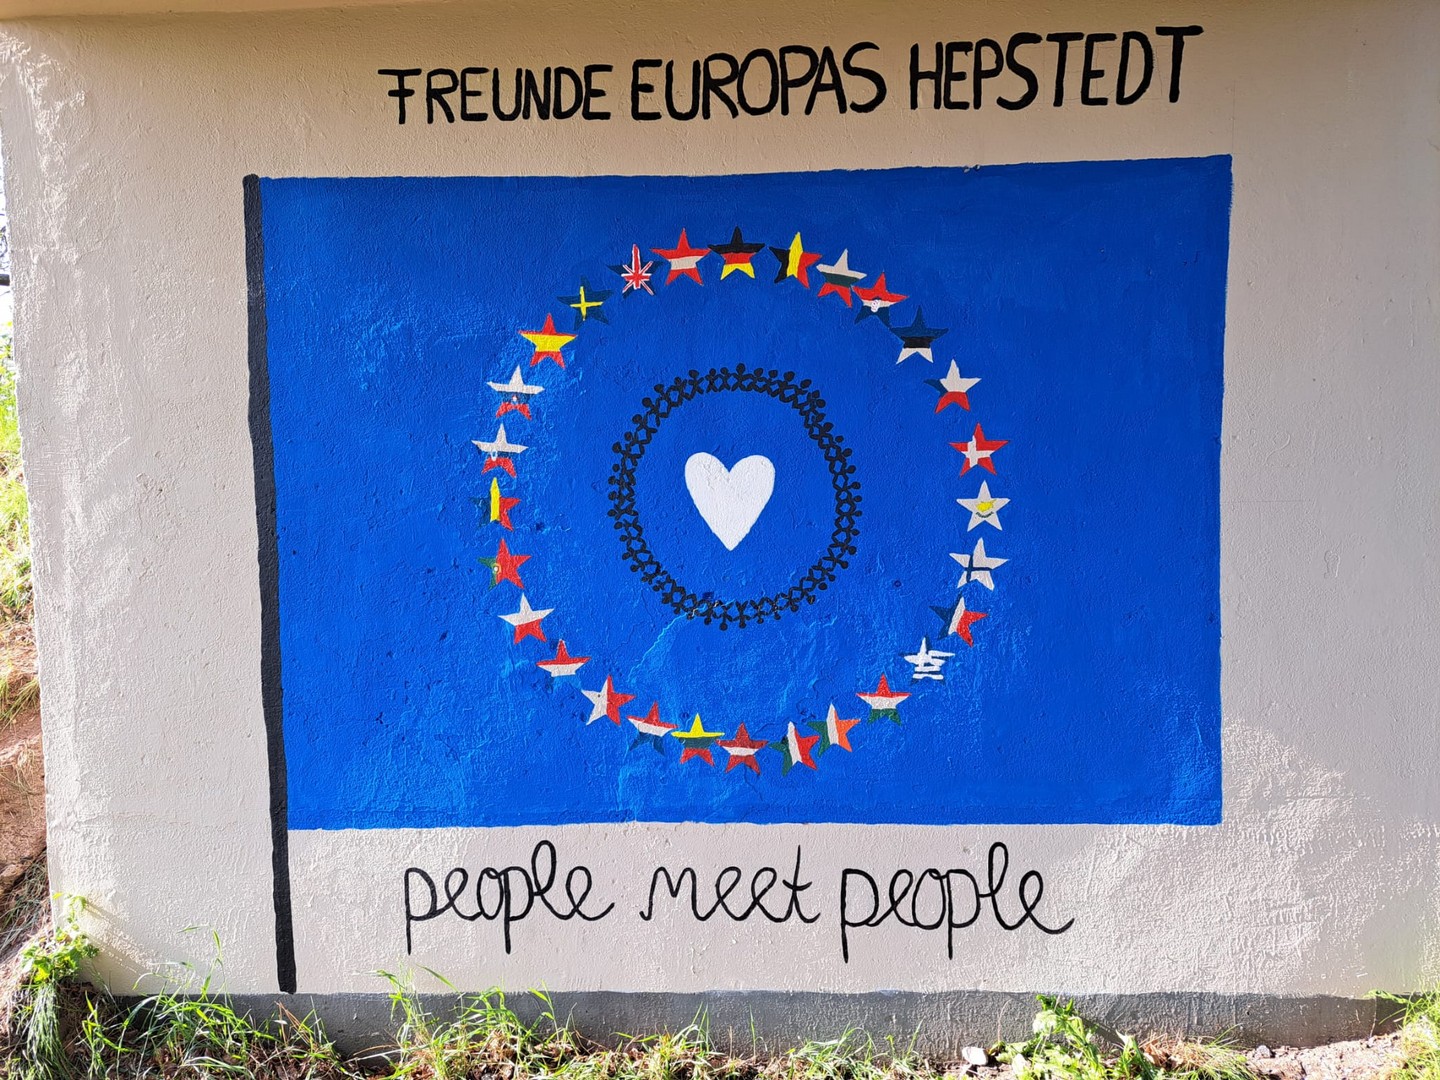 FREUNDE EUROPAS HEPSTEDT
people meet people